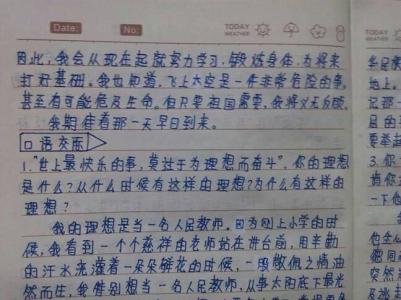 Date: No: TODAY WEATHER
因此,我会从现在起就努力学习,锻炼身体,为将来
打好基础。我也知道,飞上太空是一件非常危险的事,
甚至有可能危及生命。但只要祖国需要,我将义无反顾。
我期待着那一天早日到来。
口语交际
1."世上最快乐的事,莫过于为理想而奋斗"。你的理想
是什么?从什么时候有这样的理想?为什么有这样的
理想?
我的理想是当一名人民教师。因为刚上小学的时
候,我看到一个个慈祥的老师站在讲台前,用辛勤
的汗水浇灌着一朵朵鲜花的时候,一股敬佩之情油
然而生,我特别想当一名人民教师,从事太阳底下最光
TODAY WEATHER
地上。
记那一
3.你
一下他